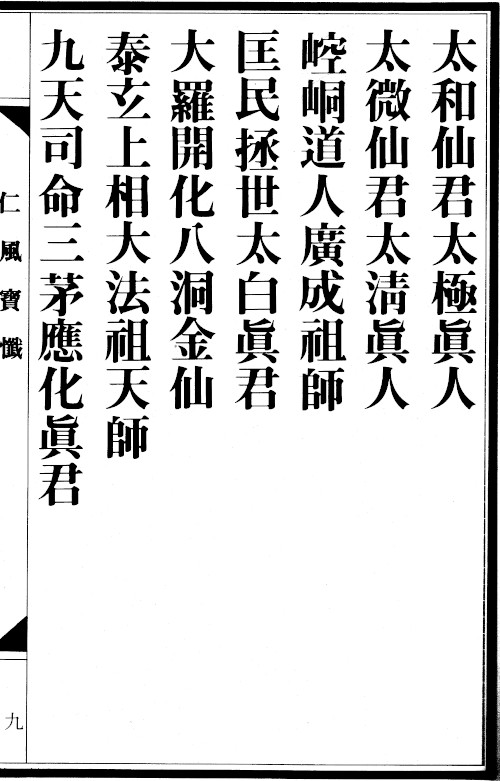 太和仙君太極眞人
太微仙君太淸眞人
崆峒道人廣成祖師
匡民拯世太白眞君
大羅開化八洞金仙
泰玄上相大法祖天師
九天司命三茅應化眞君
仁風寶懺
九